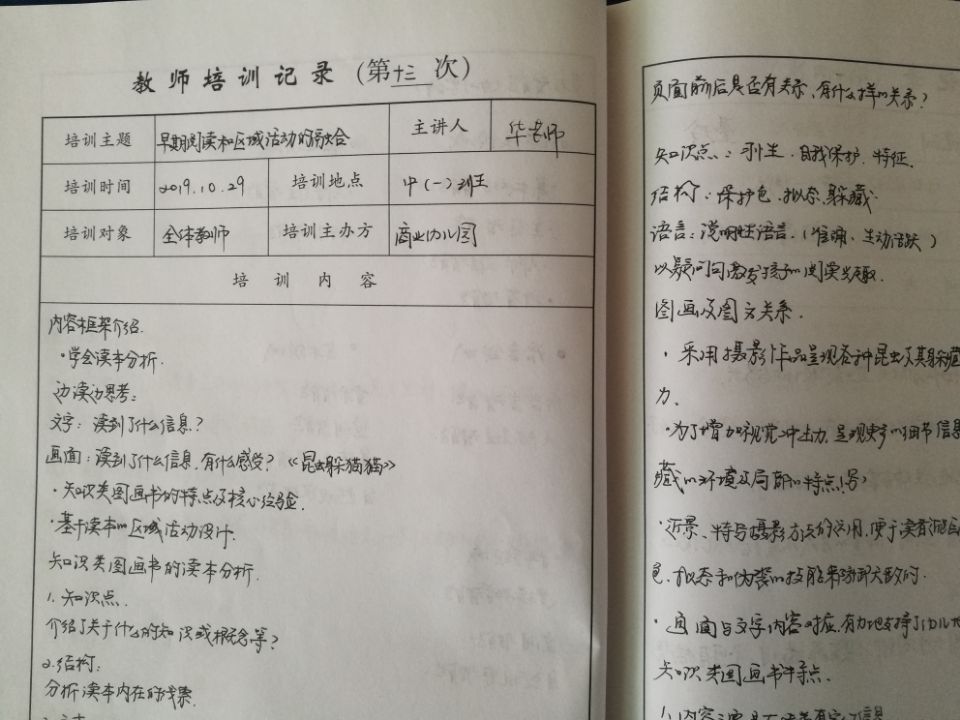 教师培训记录（第十三次）
培训主题 早期阅读和区域活动的融合 主讲人 华老师
培训时间 2019.10.29 培训地点 中（一）班
培训对象 全体教师 培训主办方 商业幼儿园
培训内容
内容框架介绍.
·学会读本分析.
边读边思考:
文字：读到了什么信息？
画面：读到了什么信息，有什么感受？《昆虫躲猫猫》
·知识类图画书的特点及核心经验.
·基于读本的区域活动设计.
知识类图画书的读本分析.
1.知识点.
介绍了关于什么的知识或概念等？
2.结构:
分析读本内在的线索.
页面前后是否有关系，有什么样的关系？
知识点：习性.自我保护.特征.
结构：保护色.拟态.躲藏.
语言：说明性语言.（准确、生动活跃）
以疑问句激发孩子的阅读兴趣.
图画及图文关系.
·采用摄影作品呈现各种昆虫及其躲藏
力、
·为了增加视觉冲击力,呈现更多的细节信息
藏的环境及局部的特点1号）
·近景、特写摄影方式的运用,便于读者
色.拟态和伪装的技能来防御天敌的.
·画面与文字内容对应,有力地支持了幼儿
知识类图画书特点.